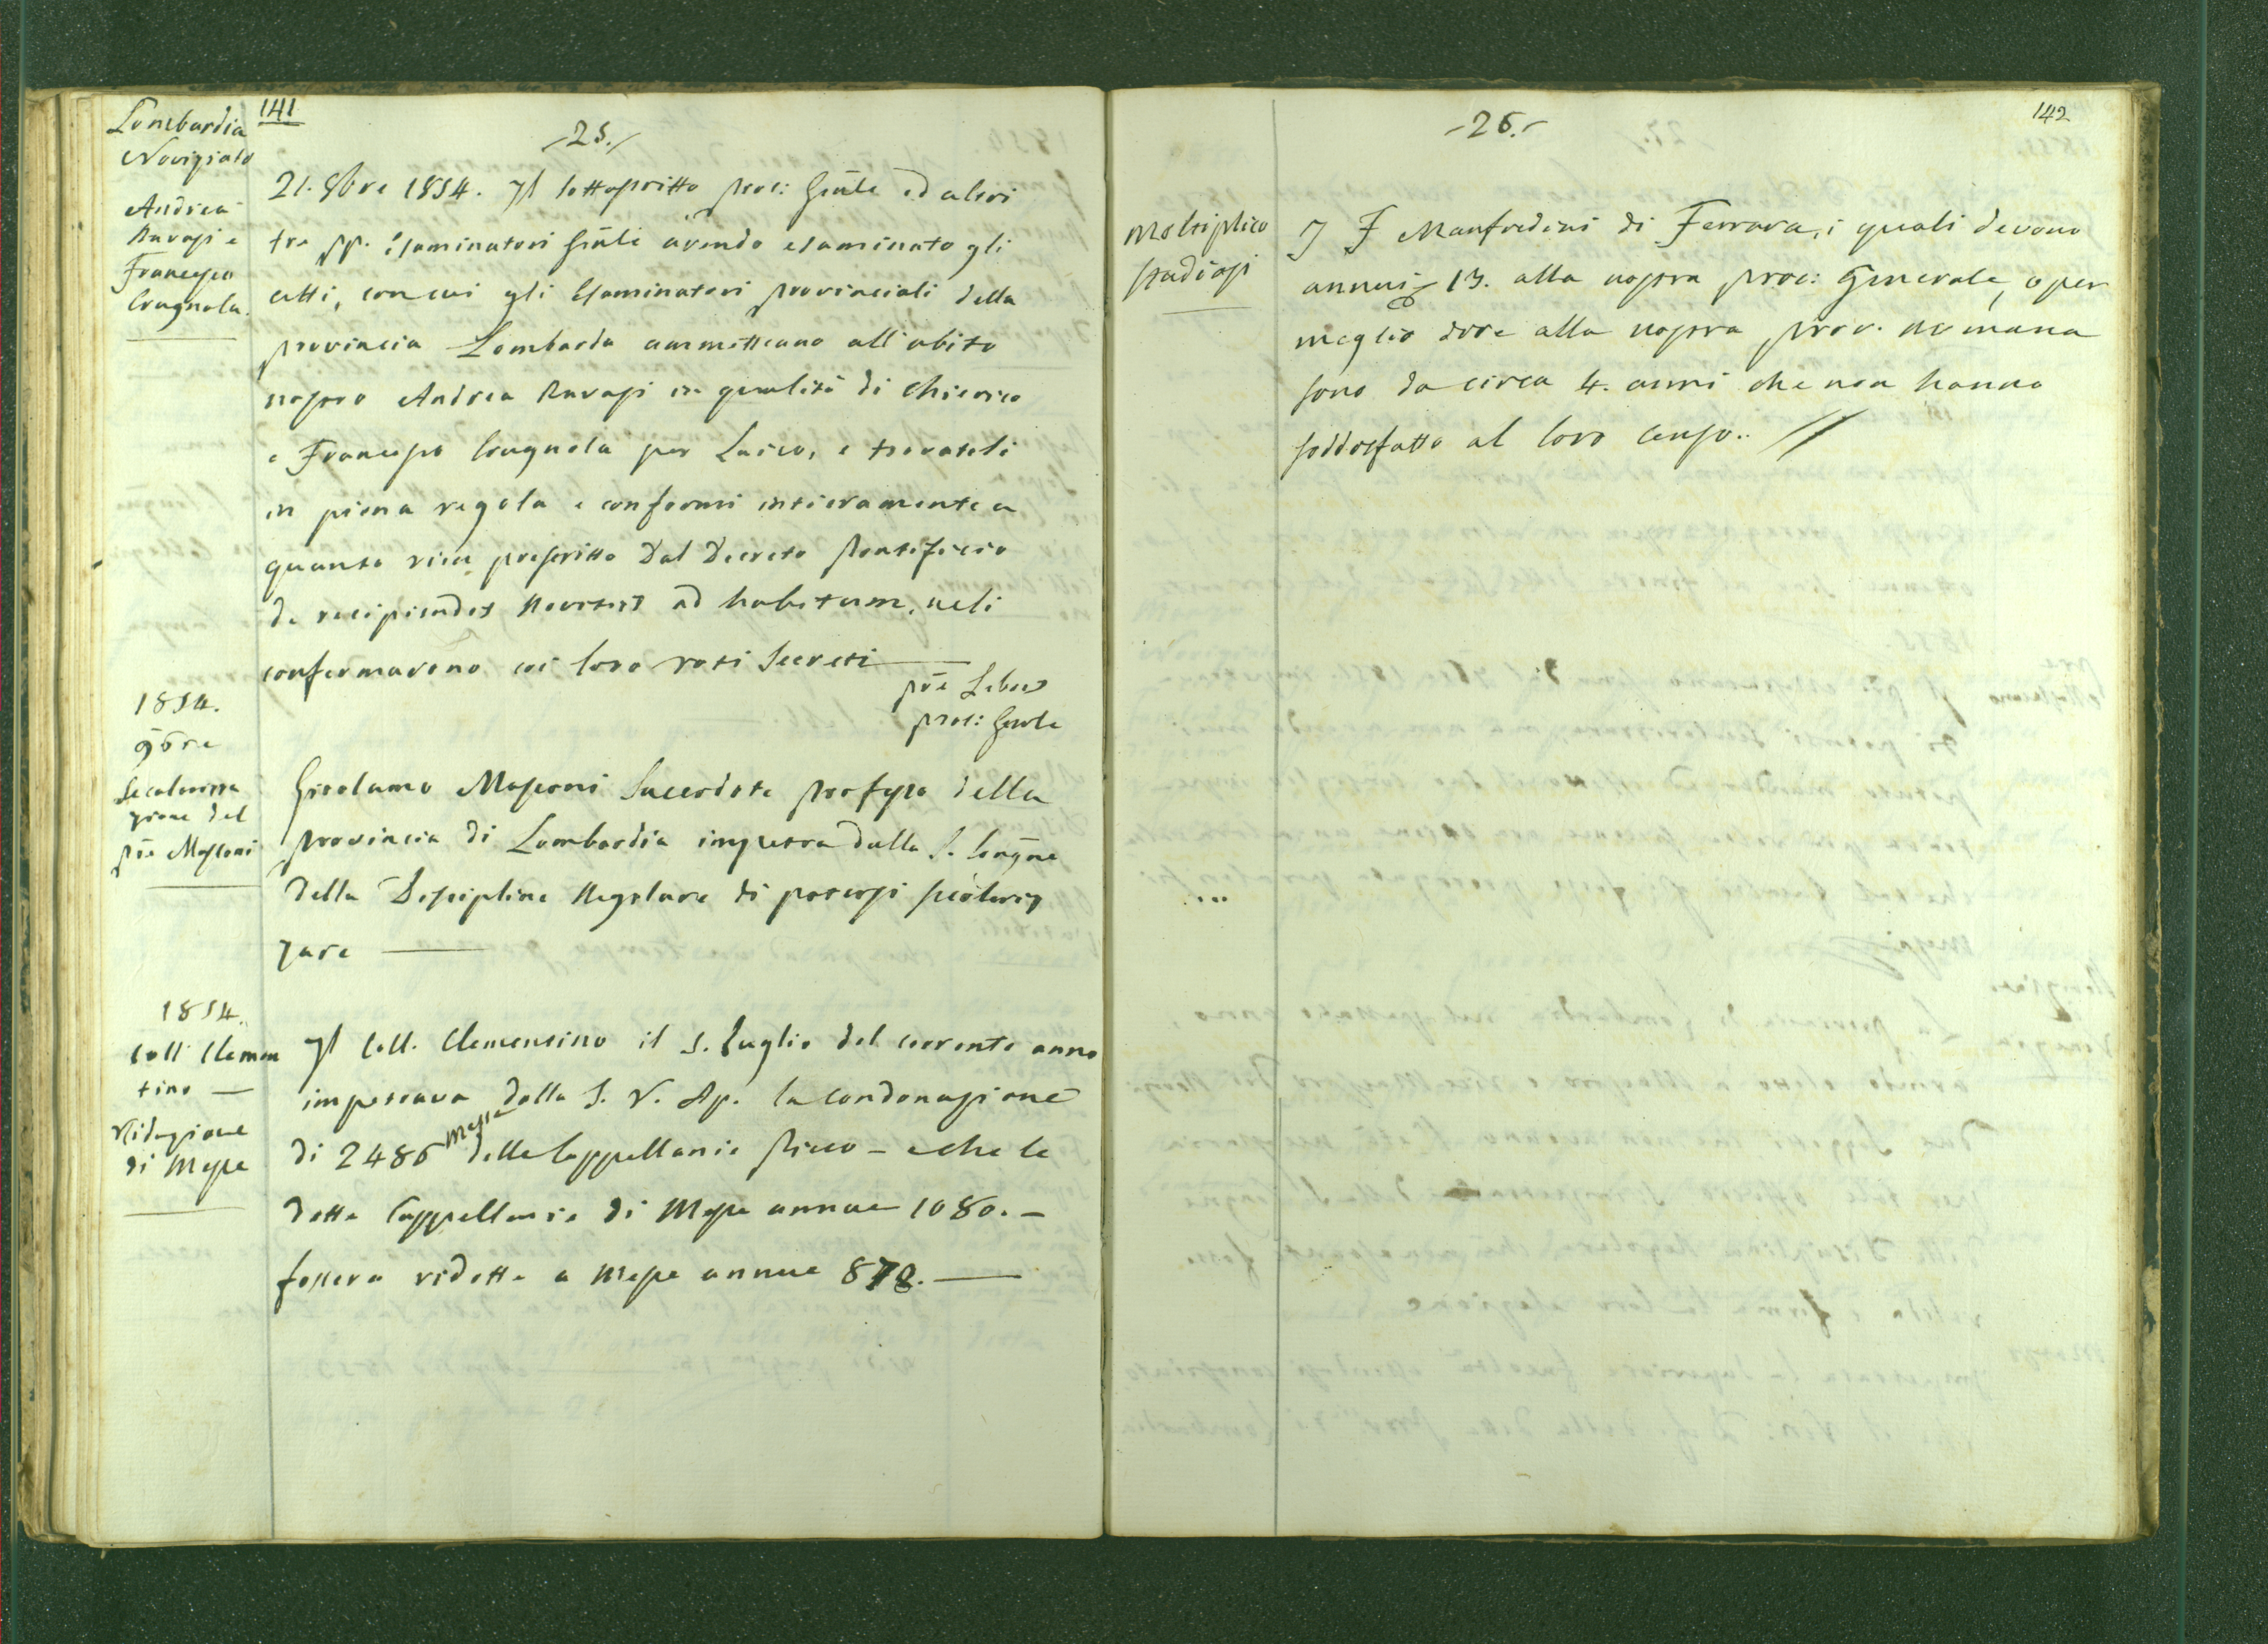 141
-25.-
Lombardia
Noviziato
Andrea
Ravasi e
Francesco
Brugnola.
21. 8bre 1854. Il sottoscritto proc: Gñle ed altri
tre pp. esaminatori Gñli avendo esaminato gli
atti, con cui gli Esaminatori provinciali della
provincia Lombarda ammetteano all'abito
nostro Andrea Ravasi in qualità di Chierico
e Francesco Brugnola per Laico, e trovatili
in piena regola e conformi intieramente a
quanto vien prescritto dal Decreto Pontificio
de recipiendis Novitiis ad habitum, veli
confermarono coi loro voti Secreti
pře Libois
proc: Genle
1854.
9bre
Secolarizza
zione del
pře Masconi
Girolamo Masconi Sacerdote professo della
provincia di Lombardia impetra dalla S. Congñe
della Disciplina Regolare di potersi secolariz
zare
1854.
Coll. Clemen
tino —
Riduzione
di Messe
Il Coll. Clementino il 5. Luglio del corrente anno
impetrava dalla S. V. Ap. la condonazione
di 2486 Messe delle Cappellanie Ricco - e che le
dette Cappellanie di Messe annue 1080. -
fossero ridotte a Messe annue 878. —
142
-26.-
Moltiplico
Stadiosi
I F Manfredini di Ferrara, i quali devono
annui 13. alla nostra proc: Generale, o per
meglio dire alla nostra prov. Romana
sono da circa 4. anni che non hanno
soddisfatto al loro censo..